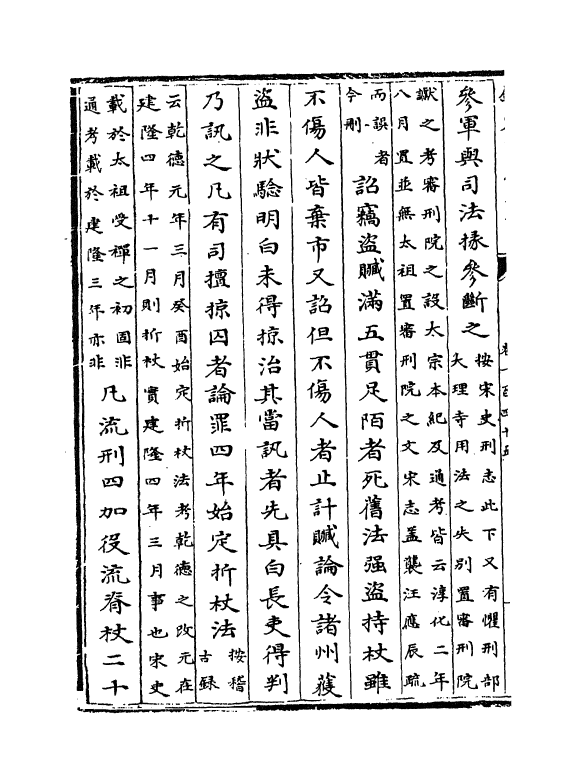 參軍與司法掾參斷之按宋史刑志此下又有懼刑部
大理寺用法之失别置審刑院
讞之考審刑院之設太宗本紀及通考皆云淳化二年
八月置並無太祖置審刑院之文宋志盖襲汪應辰疏
而誤者
今刪
詔竊盜贓滿五貫足陌者死舊法强盜持杖雖
不傷人皆棄市又詔但不傷人者止計贓論令諸州獲
盜非狀驗明白未得掠治其當訊者先具白長吏得判
乃訊之凡有司擅掠囚者論罪四年始定折杖法按稽
古錄
云乾德元年三月癸酉始定折杖法考乾德之改元在
建隆四年十一月則折杖實建隆四年三月事也宋史
載於太祖受禪之初固非
通考載於建隆三年亦非
凡流刑四加役流脊杖二十